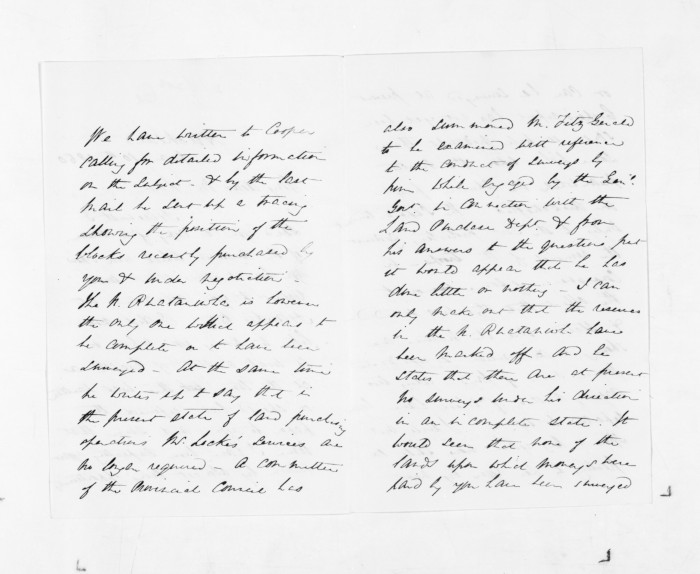 We have written to Cooper
calling for detailed information
on the subject - & by the last
mail he sent up a tracing
shewing the position of the
blocks recently purchased by
you & under negotiation -
The N. Ruataniwha is however
the only one which appears to
be complete or to have been
surveyed - At the same time
he writes up to say that in
the present state of land purchasing
operations Mr Locke's services are
no longer required - A committee
of the Provincial Council has
also summoned Mr. FitzGerald
to be examined with reference
to the conduct of surveys by
him while engaged by the Genl.
Govt. in connection with the
Land Purchase Dept. & from
his answers to the questions put
it would appear that he has
done little or nothing - I can
only make out that the reserves
in the N. Ruataniwha have
been marked off - And he
states that there are at present
no surveys under his direction
in an incomplete state. It
would seem that none of the
lands upon which moneys were
paid by you have been surveyed